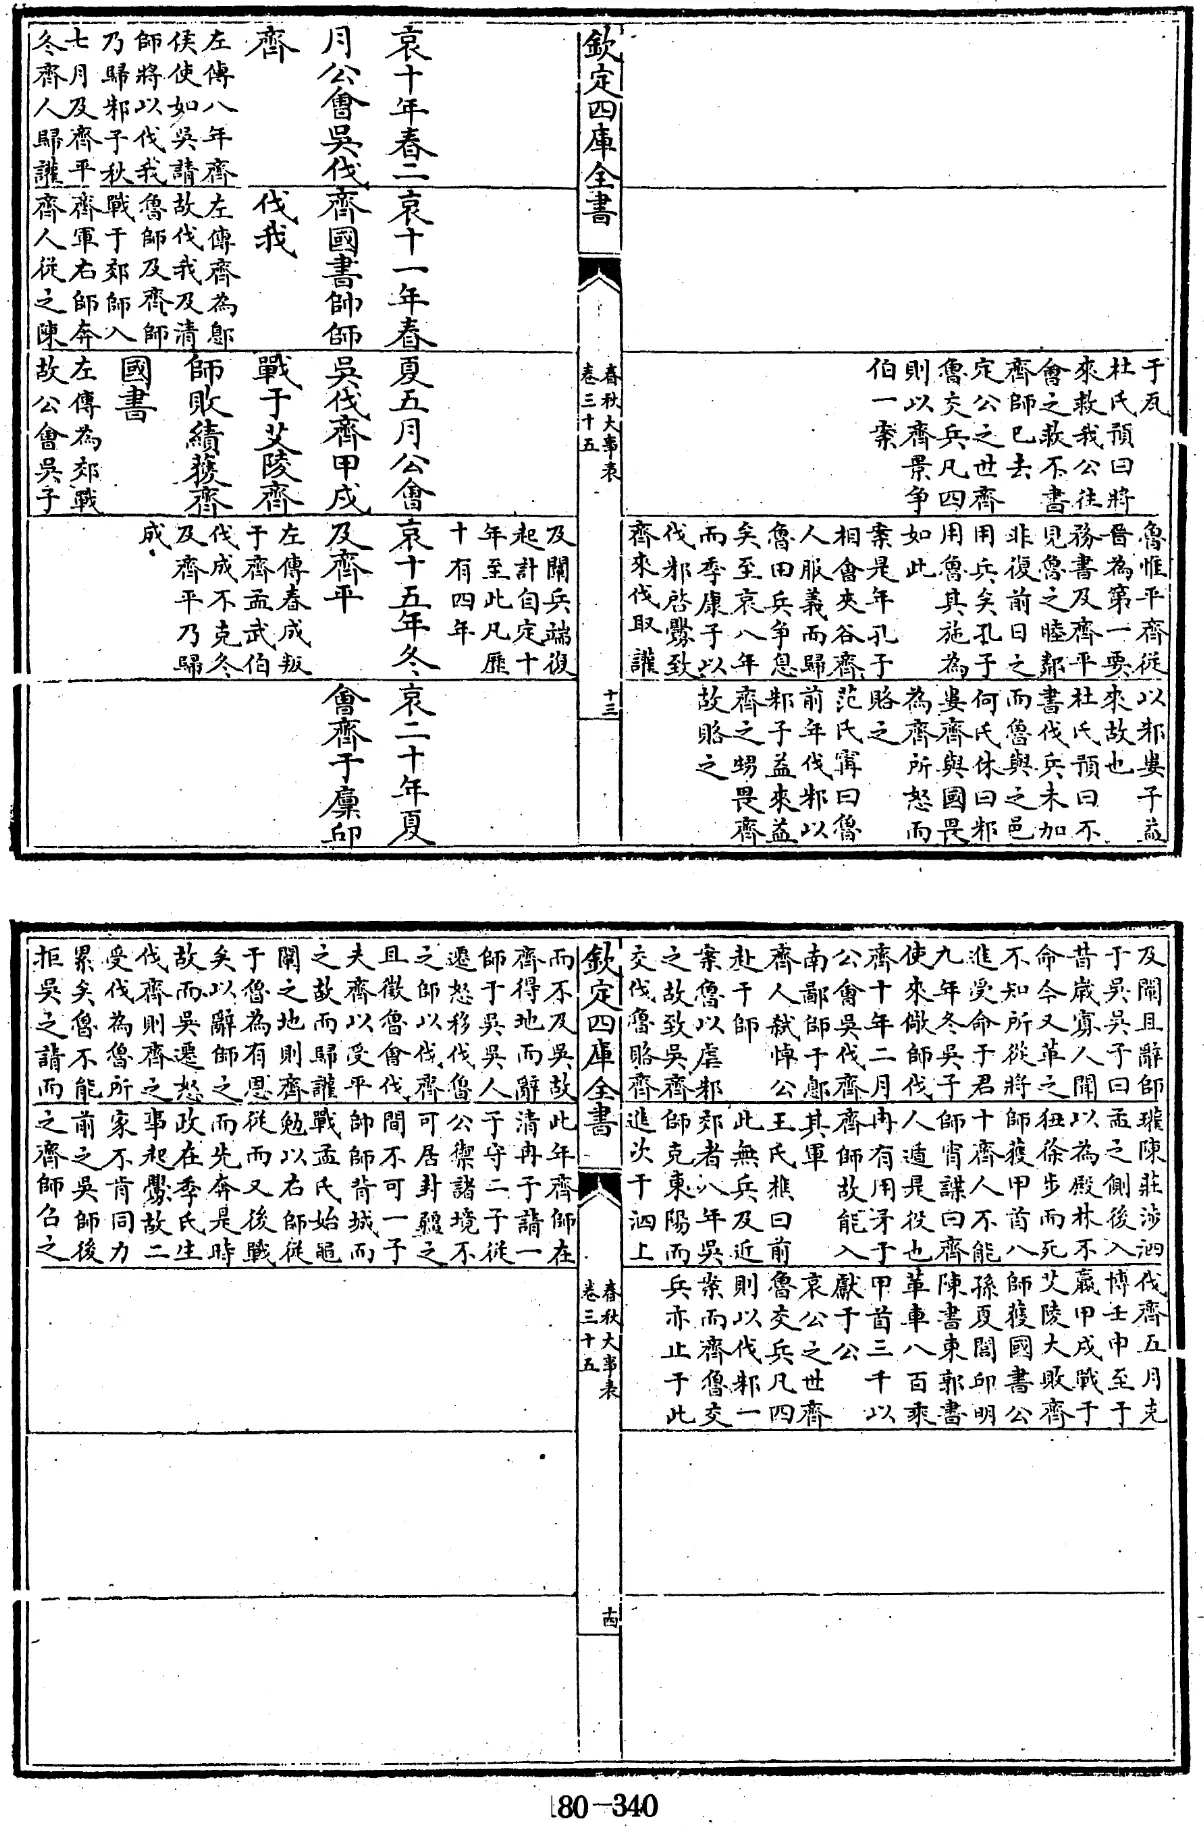 于瓦
杜氏預曰將
來救我公往
會之救不書
齊師已去
定公之世齊
魯交兵凡四
則以齊景爭
伯一案
魯惟平齊從
晉為第一要
務書及齊平
見魯之睦鄰
非復前日之
用兵矣孔子
用魯其施為
如此
案是年孔子
相會夾谷齊
人服義而歸
魯田兵爭息
矣至哀八年
而季康子以
伐邾啓釁致
齊來伐取讙
以邾婁子益
來故也
杜氏預曰不
書伐兵未加
而魯與之邑
何氏休曰邾
婁齊與國畏
為齊所怒而
賂之
范氏甯曰魯
前年伐邾以
邾子益來益
齊之甥畏齊
故賂之
欽定四庫全書
春秋大事表
卷三十五
十三
哀十年春二
月公會吳伐
齊
左傳八年齊
侯使如吳請
師將以伐我
乃歸邾子秋
七月及齊平
冬齊人歸讙
哀十一年春
齊國書帥師
伐我
左傳齊為鄎
故伐我及清
魯師及齊師
戰于郊師入
齊軍右師奔
齊人從之陳
夏五月公會
吳伐齊甲戌
戰于艾陵齊
師敗績獲齊
國書
左傳為郊戰
故公會吳子
及闡兵端復
起計自定十
年至此凡歷
十有四年
哀十五年冬
及齊平
左傳春成叛
于齊孟武伯
伐成不克冬
及齊平乃歸
成
哀二十年夏
會齊于廩邱
及闡且辭師
于吳吳子曰
昔歲寡人聞
命今又革之
不知所從將
進受命于君
九年冬吳子
使來儆師伐
齊十年二月
公會吳伐齊
南鄙師于鄎
齊人弒悼公
赴于師
案魯以虐邾
之故致吳齊
交伐魯賂齊
瓘陳莊涉泗
孟之側後入
以為殿林不
狃徐步而死
師獲甲首八
十齊人不能
師宵諜曰齊
人遁是役也
冉有用矛于
齊師故能入
其軍
王氏樵曰前
此無兵及近
郊者八年吳
師克東陽而
進次于泗上
伐齊五月克
博壬申至于
嬴甲戌戰于
艾陵大敗齊
師獲國書公
孫夏閭邱明
陳書東郭書
革車八百乘
甲首三千以
獻于公
哀公之世齊
魯交兵凡四
則以伐邾一
案而齊魯交
兵亦止于此
欽定四庫全書
春秋大事表
卷三十五
十四
而不及吳故
齊得地而辭
師于吳吳人
遷怒移伐魯
之師以伐齊
且徵魯會伐
夫齊以受平
之故而歸讙
闡之地則齊
于魯為有恩
矣以辭師之
故而吳遷怒
伐齊則齊之
受伐為魯所
累矣魯不能
拒吳之請而
此年齊師在
清冉子請一
子守二子從
公禦諸境不
可居封疆之
間不可一子
帥師背城而
戰孟氏始黽
勉以右師從
從而又後戰
而先奔是時
政在季氏生
事起釁故二
家不肯同力
前之吳師後
之齊師召之
180-340